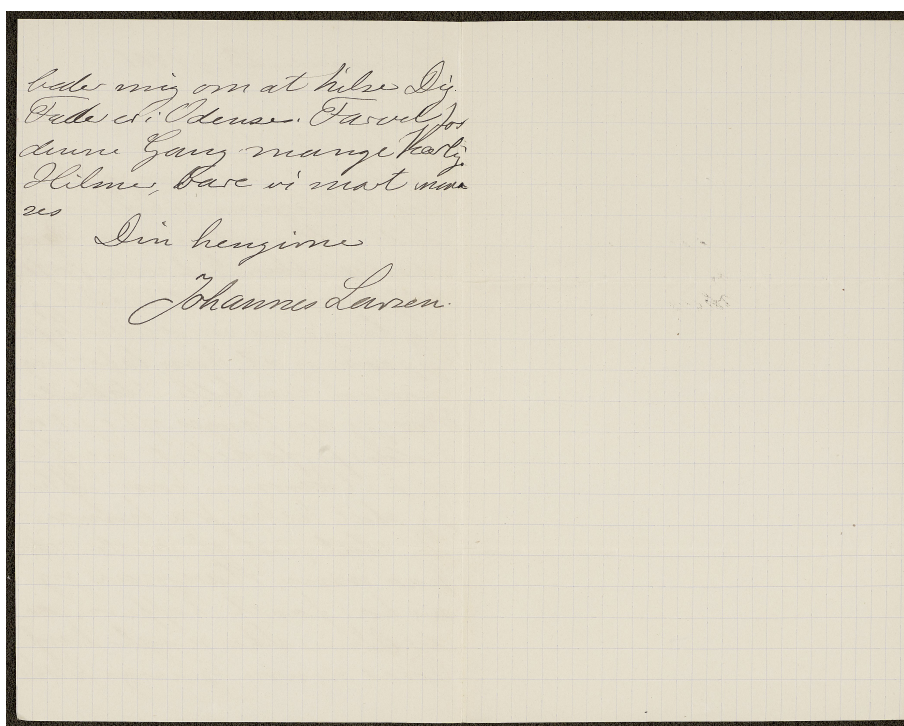 beder mig om at hilse Dig.
Fader er i Odense. Farvel for
denne Gang mange kærlig
Hilsner, bare vi snart
ses
Din hengivne
Johannes Larsen.